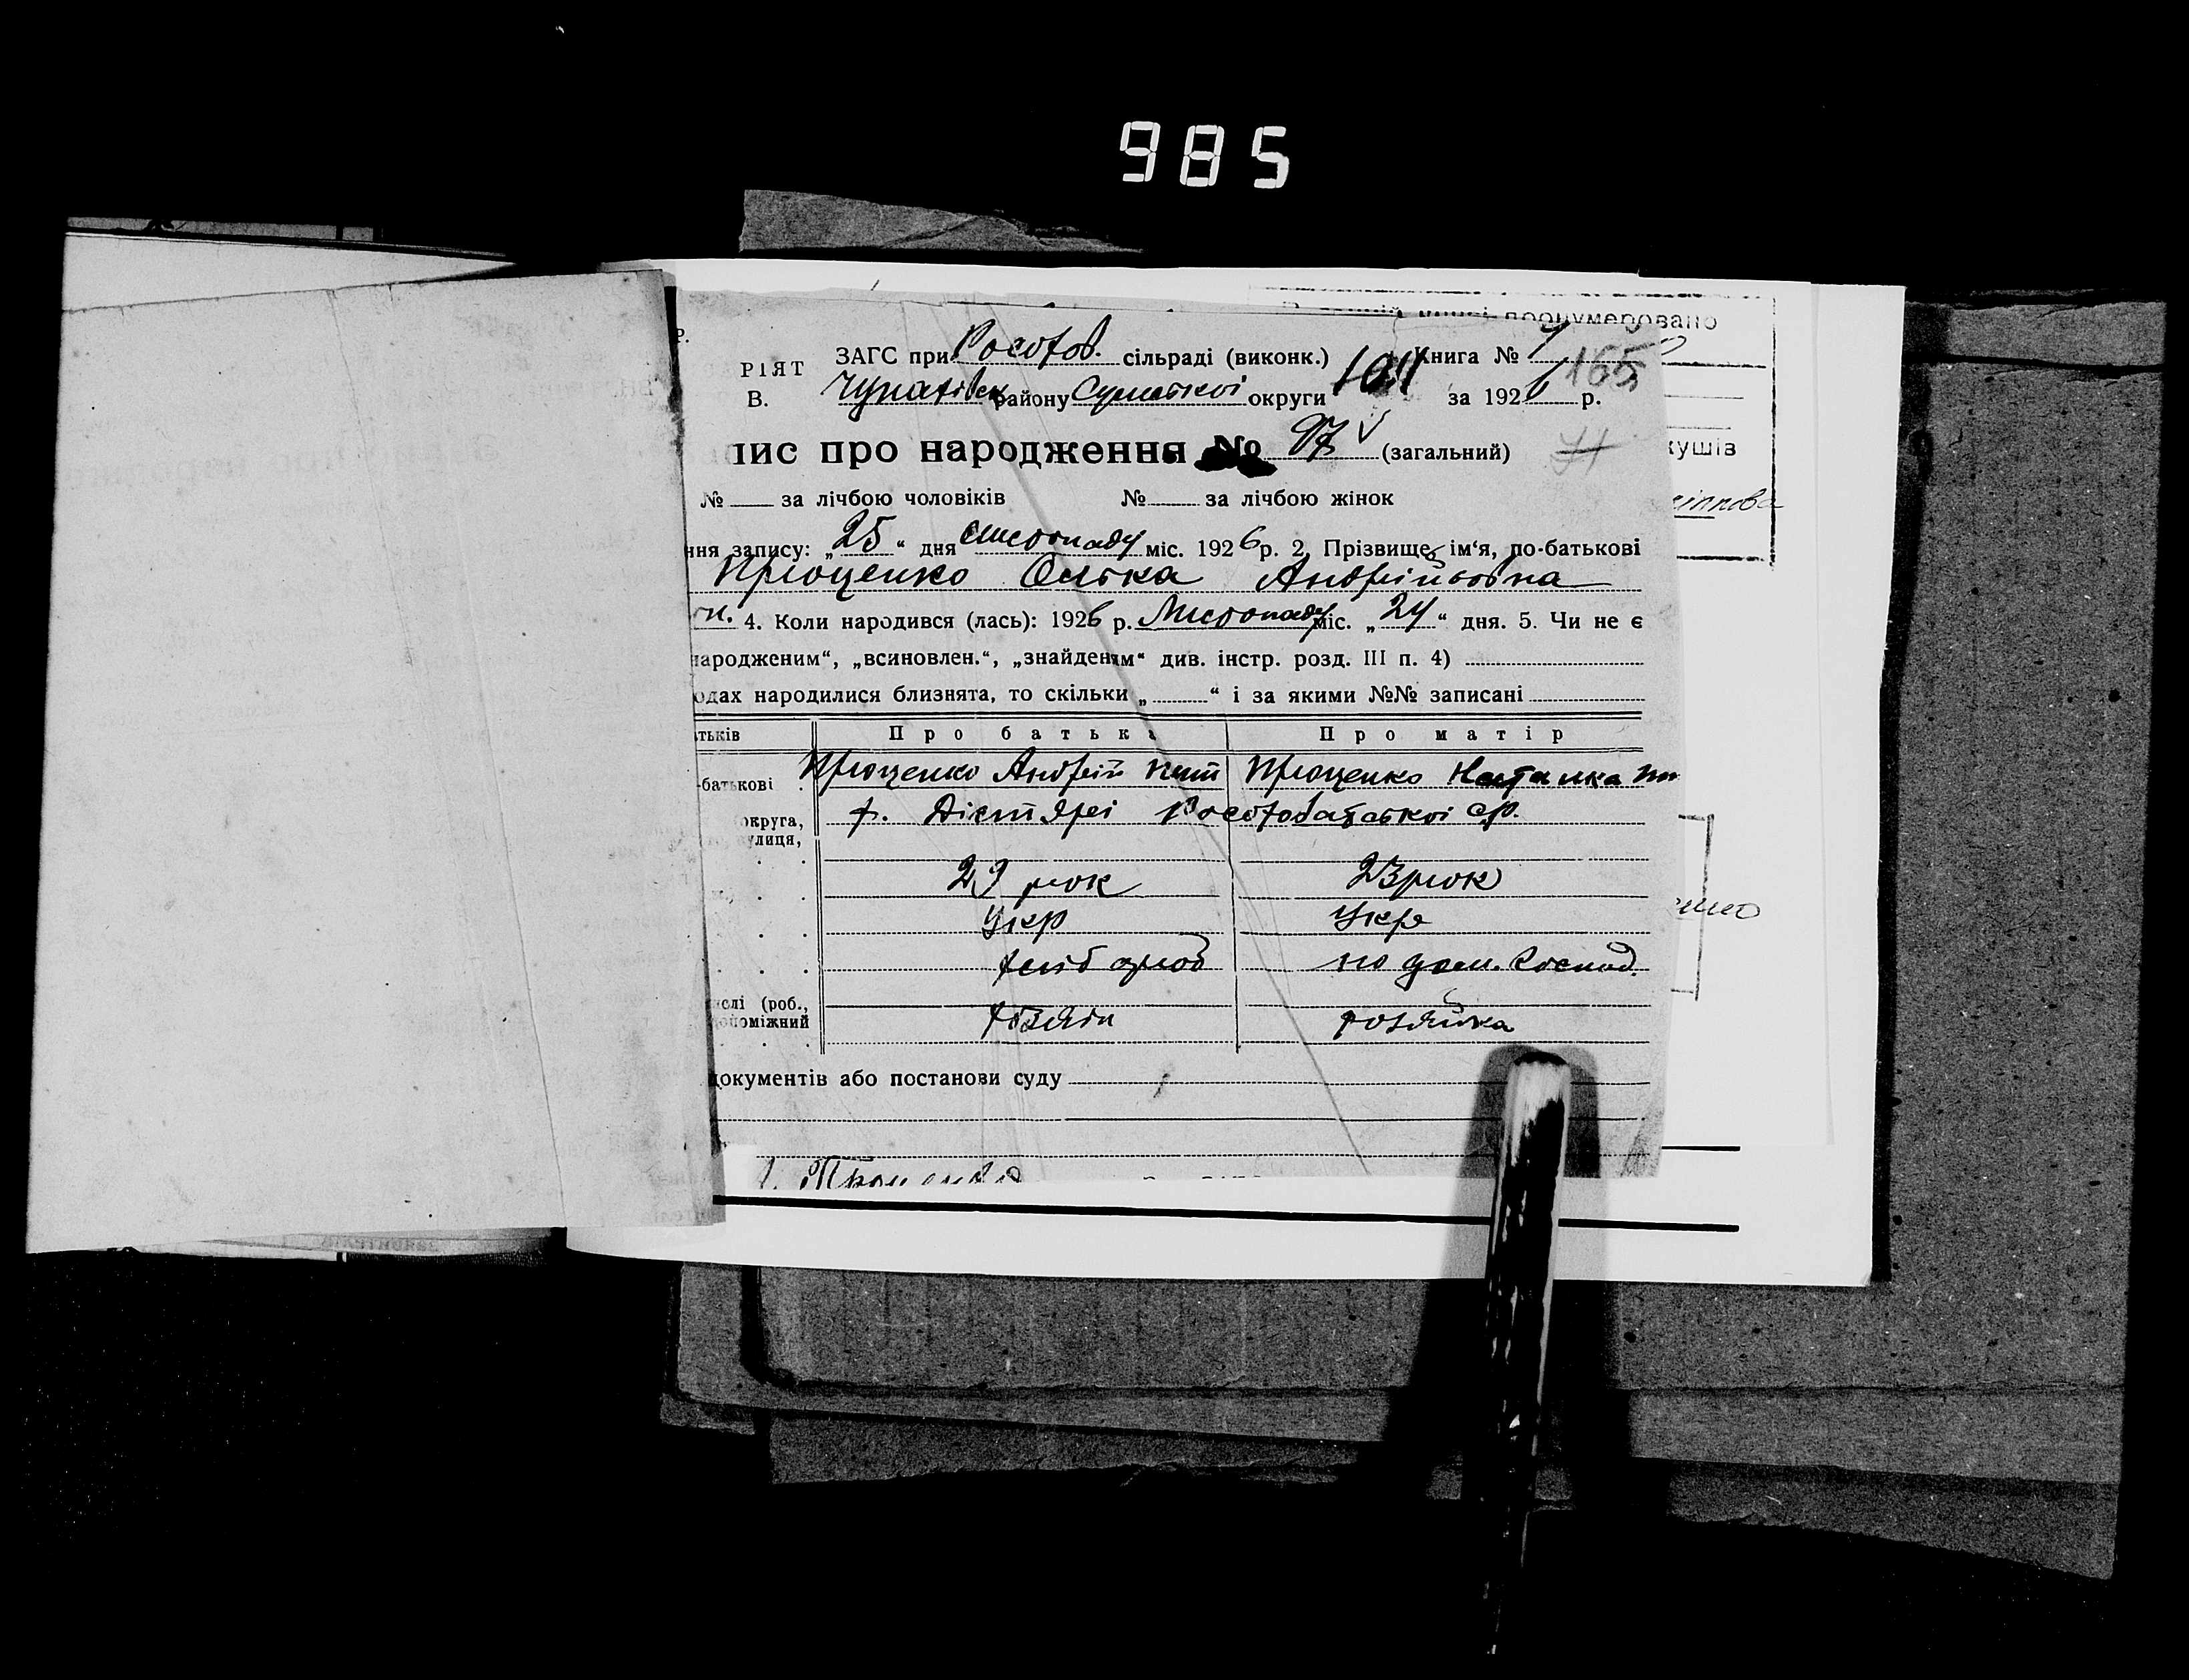 985
В цій книзі пронумеровано
Р.
РІЯТ ЗАГС при Росохов. сільраді (виконк.) Книга № 1 165
В. Чупахівськ району Сумської округи 1011 за 1926 р.
пис про народження № 97 (загальний) 71
кушів
№ за лічбою чоловіків № за лічбою жінок
ння запису: „25“ дня Листопаду міс. 1926 р. 2. Прізвище, ім‘я, по-батькові
Проценко Олька Андрійовна
4. Коли народився (лась): 1926 р. Листопаду міс. „24“ дня. 5. Чи не є
народженим“, „всиновлен.“, „знайденим“ див. інстр. розд. III п. 4)
одах народилися близнята, то скільки „ “ і за якими №№ записані
тьків Про батька Про матір
-батькові Проценко Андрій Проценко Наталка
округа, х. Дігтярі ср.
улиця,
29 рок 23 рок
Укр Укр
хлібороб по дом. господ.
слі (роб., хозяїн хозяйка
опоміжний
документів або постанови суду